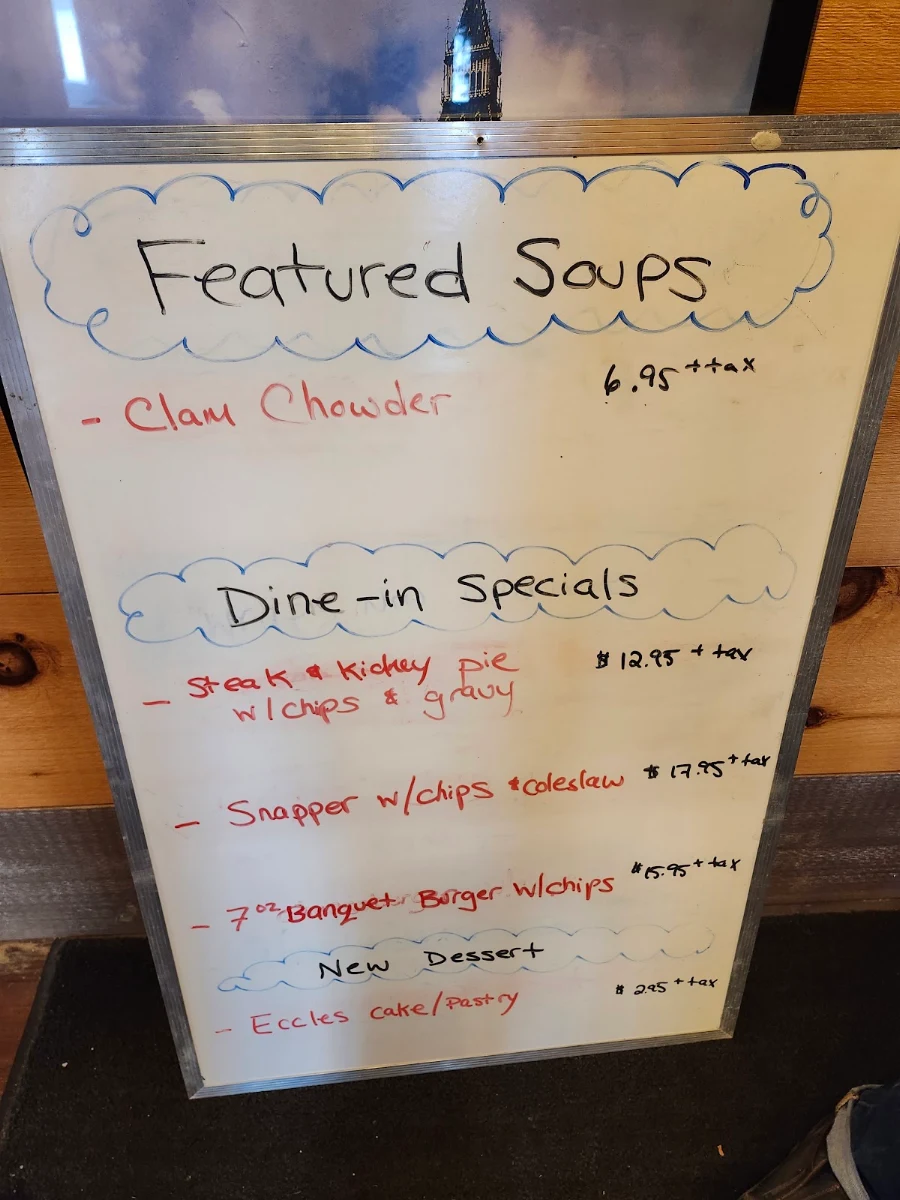 Featured Soups
- Clam Chowder 6.95 + tax
Dine-in Specials
- Steak & Kidney pie $ 12.95 + tax
w/chips & gravy
- Snapper w/chips & coleslaw $ 17.95 + tax
- 7oz Banquet Burger w/chips $15.95 + tax
New Dessert
- Eccles cake/Pastry $ 2.95 + tax